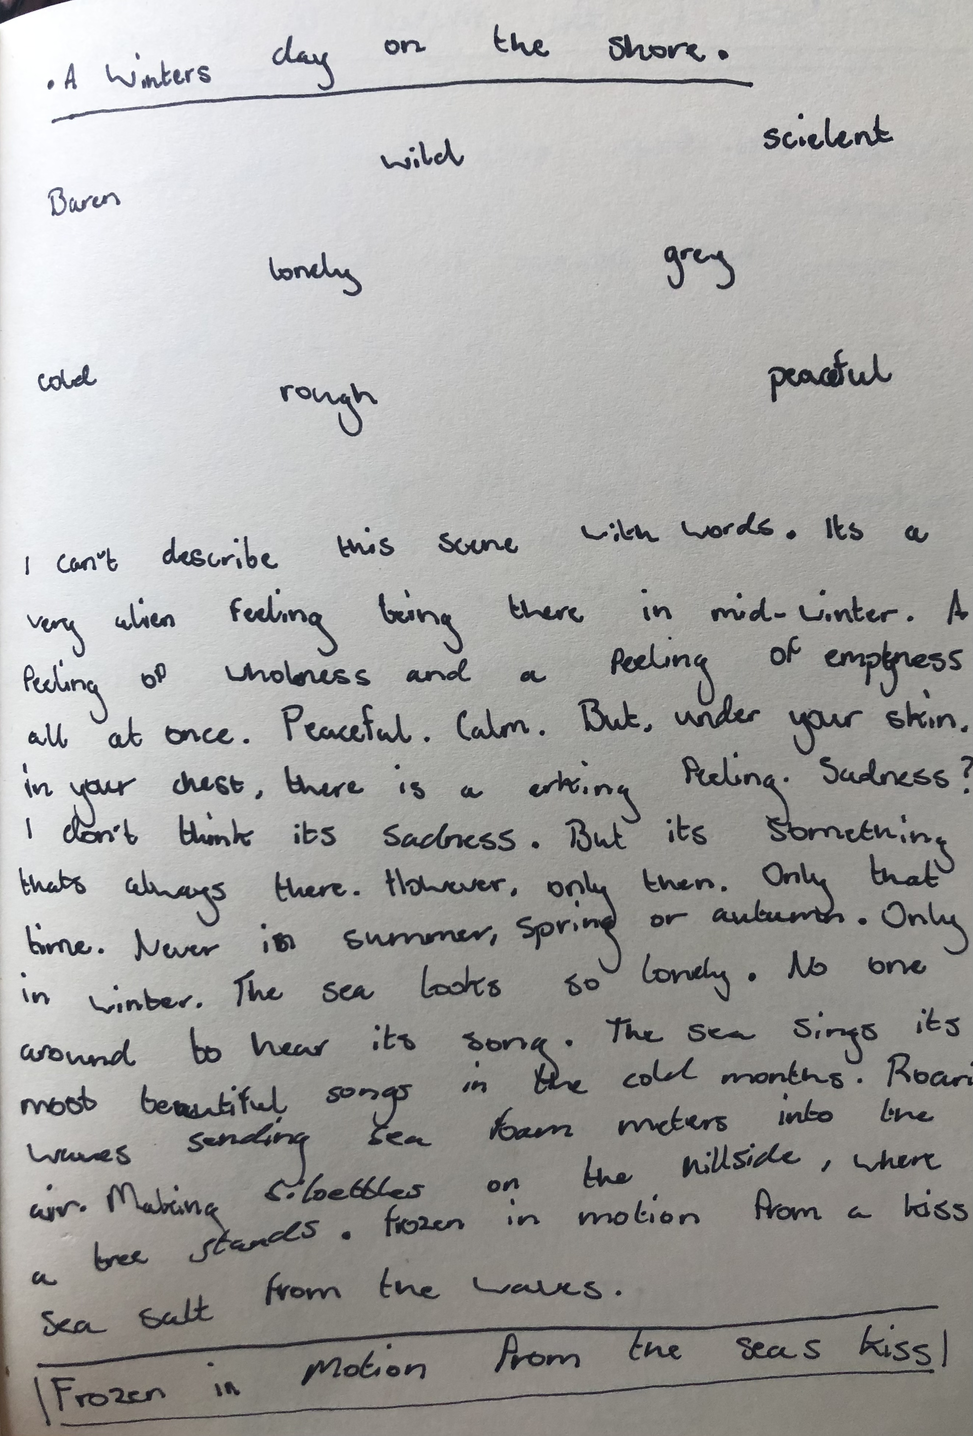 . A Winters day on the shore.
wild scielent
Baren
lonely grey
cold rough peaceful
I can't describe this scene with words. Its a
very alien feeling being there in mid-winter. A
feeling of wholness and a feeling of emptyness
all at once. Peaceful. Calm. But, under your skin,
in your chest, there is a erking feeling. Sadness?
I don't think its sadness. But its something
thats always there. However, only then. Only that
time. Never in summer, spring or autumn. Only
in winter. The sea looks so lonely. No one
around to hear its song. The sea sings its
most beautiful songs in the cold months. Roari
waves sending sea foam meters into the
air. Making on the hillside, where
a tree stands. frozen in motion from a kiss
sea salt from the waves.
Frozen in Motion from the seas kiss